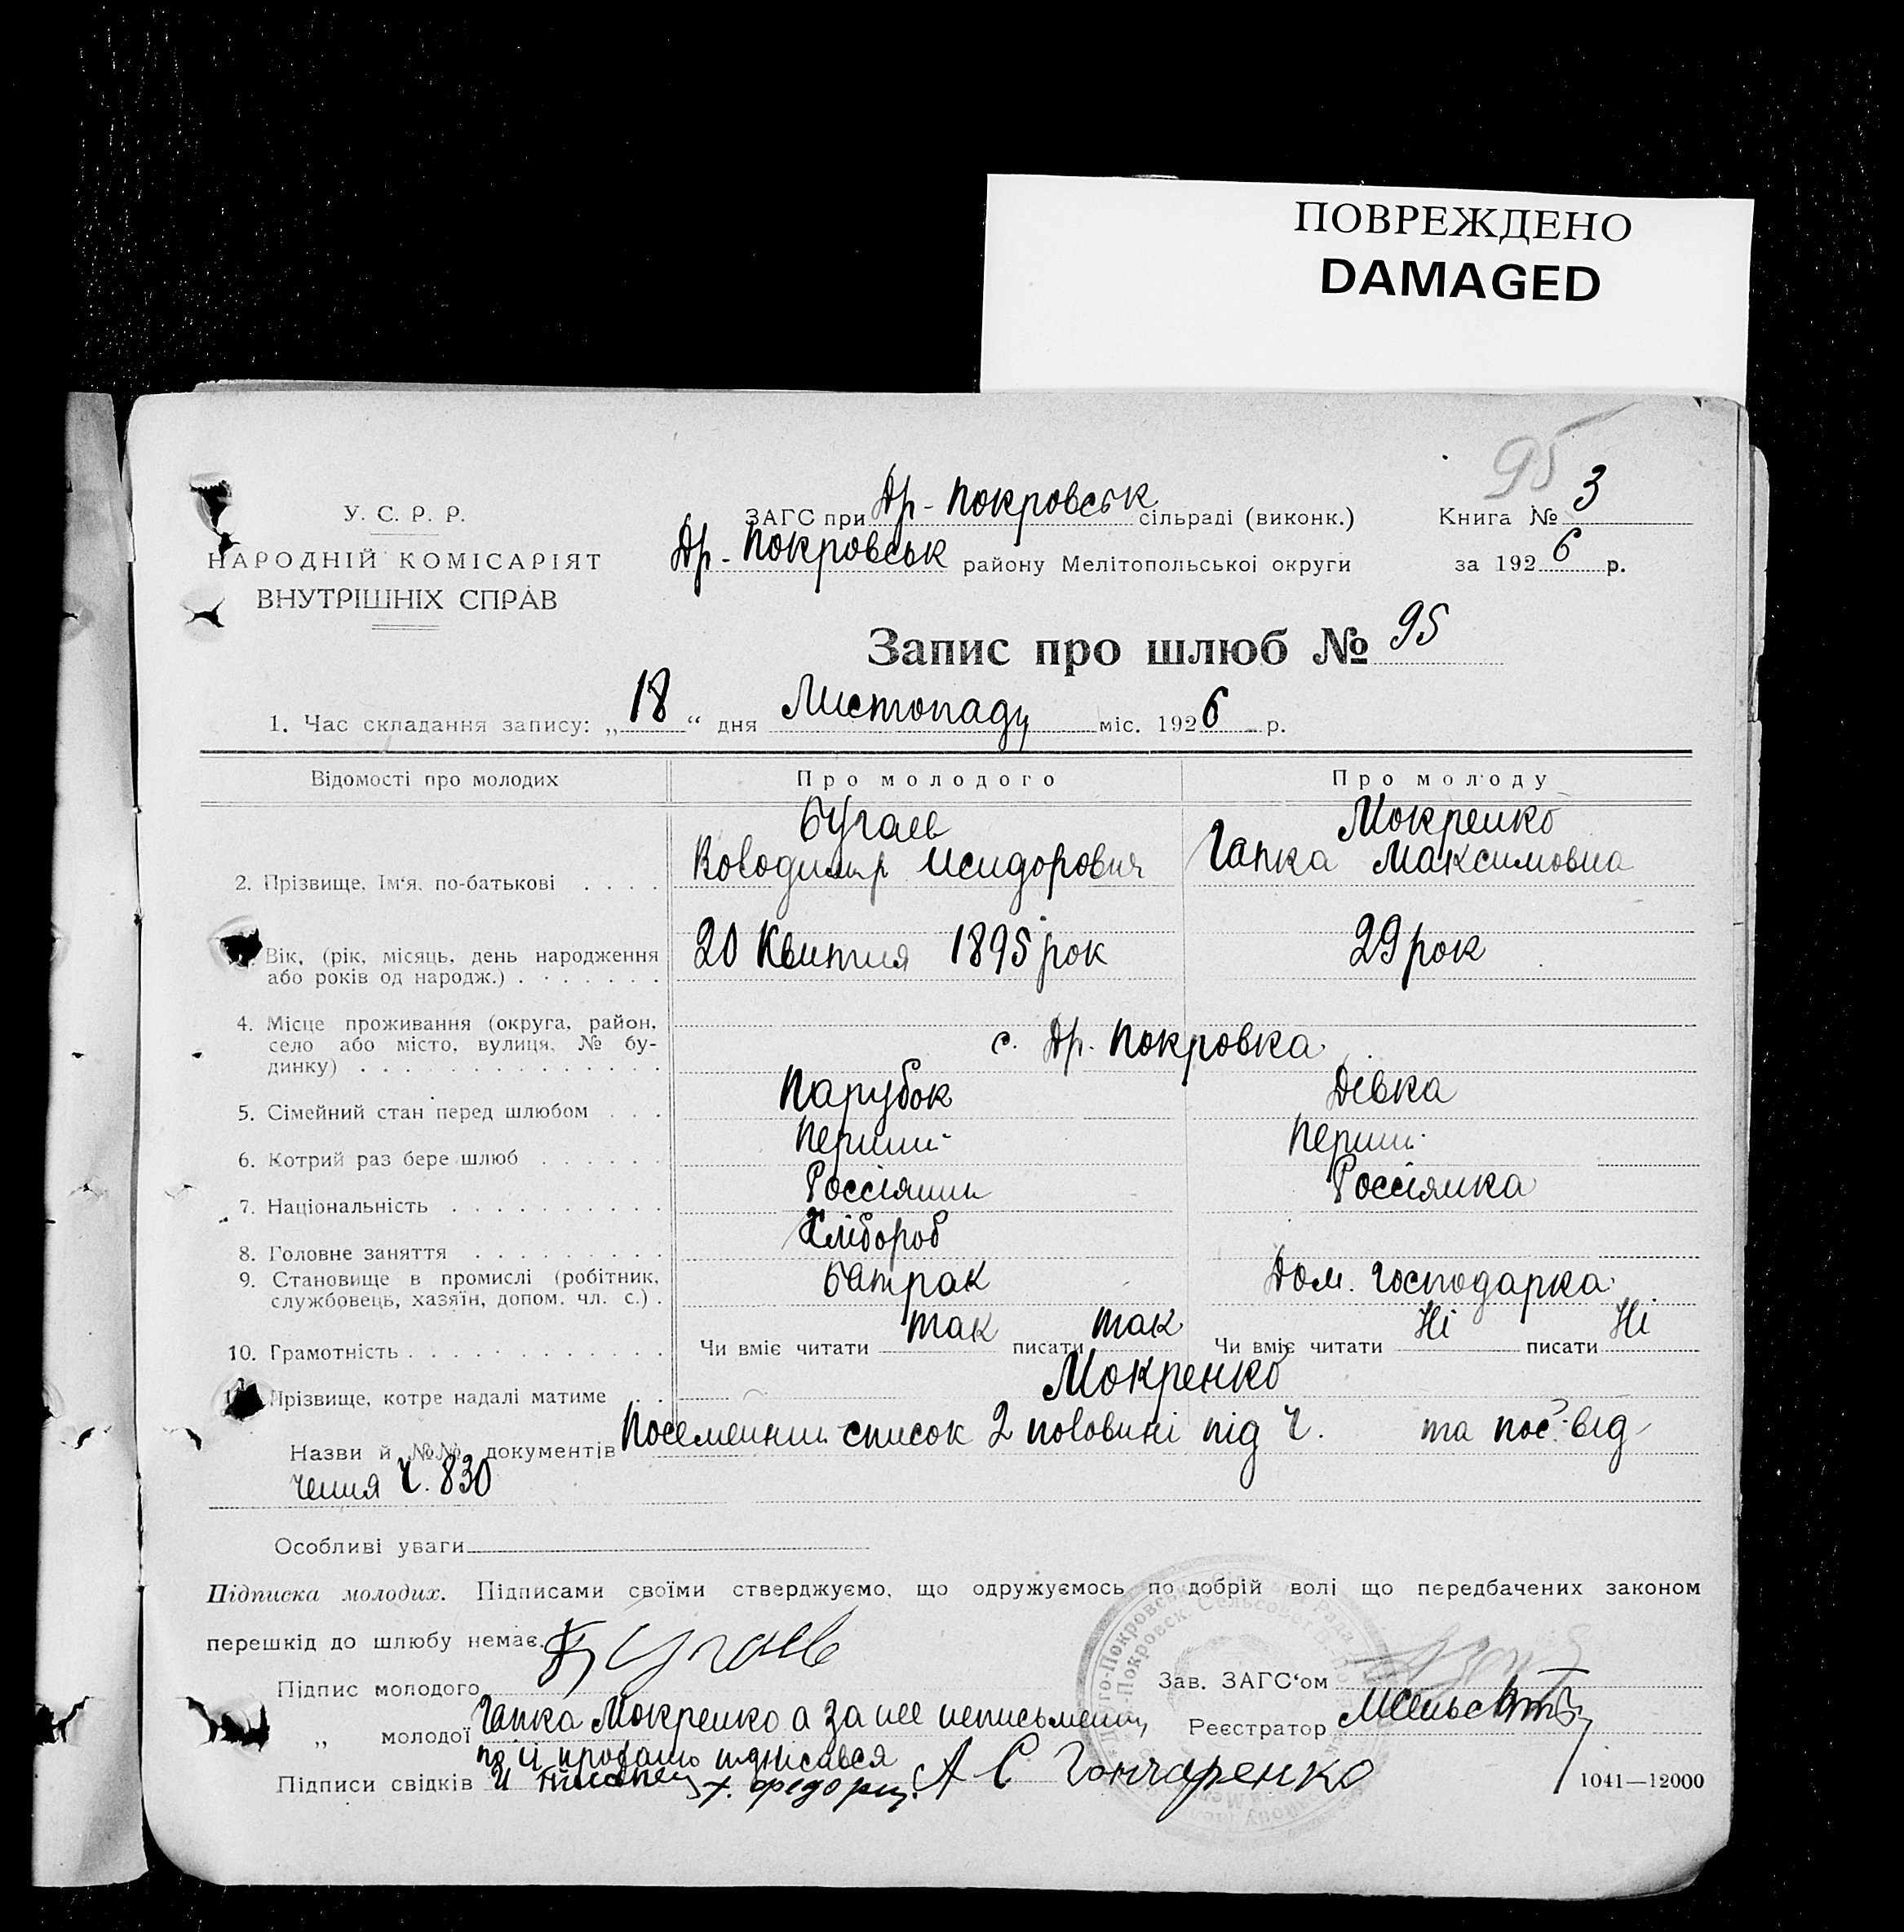 ПОВРЕЖДЕНО
DAMAGED
95
У. С. Р. Р.
НАРОДНІЙ КОМІСАРІЯТ
ВНУТРІШНІХ СПРАВ
ЗАГС при Др-Покровськ сільраді (виконк.)
Др-Покровськ району Мелітопольської округи
Книга № 3
за 1926 р.
Запис про шлюб № 95
1. Час складання запису: „18“ дня Листопаду міс. 1926 р.
Відомості про молодих
Про молодого
Про молоду
2. Прізвище, Ім‘я, по-батькові . . . .
Бугаев
Володимир Исидорович
Мокренко
Гапка Максимовна
Вік, (рік, місяць, день народження
або років од народж.) . . . . . . .
20 Квитня 1895 рок
29 рок
4. Місце проживання (округа, район,
село або місто, вулиця, № бу-
динку) . . . . . . . . . . . . . .
с. Др. Покровка
5. Сімейний стан перед шлюбом . . .
Парубок
Дівка
6. Котрий раз бере шлюб . . . . . .
Перший
Перший
7. Національність . . . . . . . . . .
Россіянин
Россіянка
8. Головне заняття . . . . . . . . .
Хлібороб
9. Становище в промислі (робітник,
службовець, хазяїн, допом. чл. с.) .
батрак
Дом. господарка
10. Грамотність . . . . . . . . . . . .
Чи вміє читати так писати так
Чи вміє читати Ні писати Ні
11. Прізвище, котре надалі матиме . .
Мокренко
Назви й №№ документів Посемейний список 2 половині під ч. та пос? від-
чення ч. 830
Особливі уваги
Підписка молодих. Підписами своїми стверджуємо, що одружуємось по добрій волі що передбачених законом
перешкід до шлюбу немає.
Підпис молодого Бугаев
„ молодої Гапка Мокренко а за нее неписьменну
по її проханю підписався
Підписи свідків А С Гончаренко
Зав. ЗАГС‘ом
Реєстратор
1041—12000